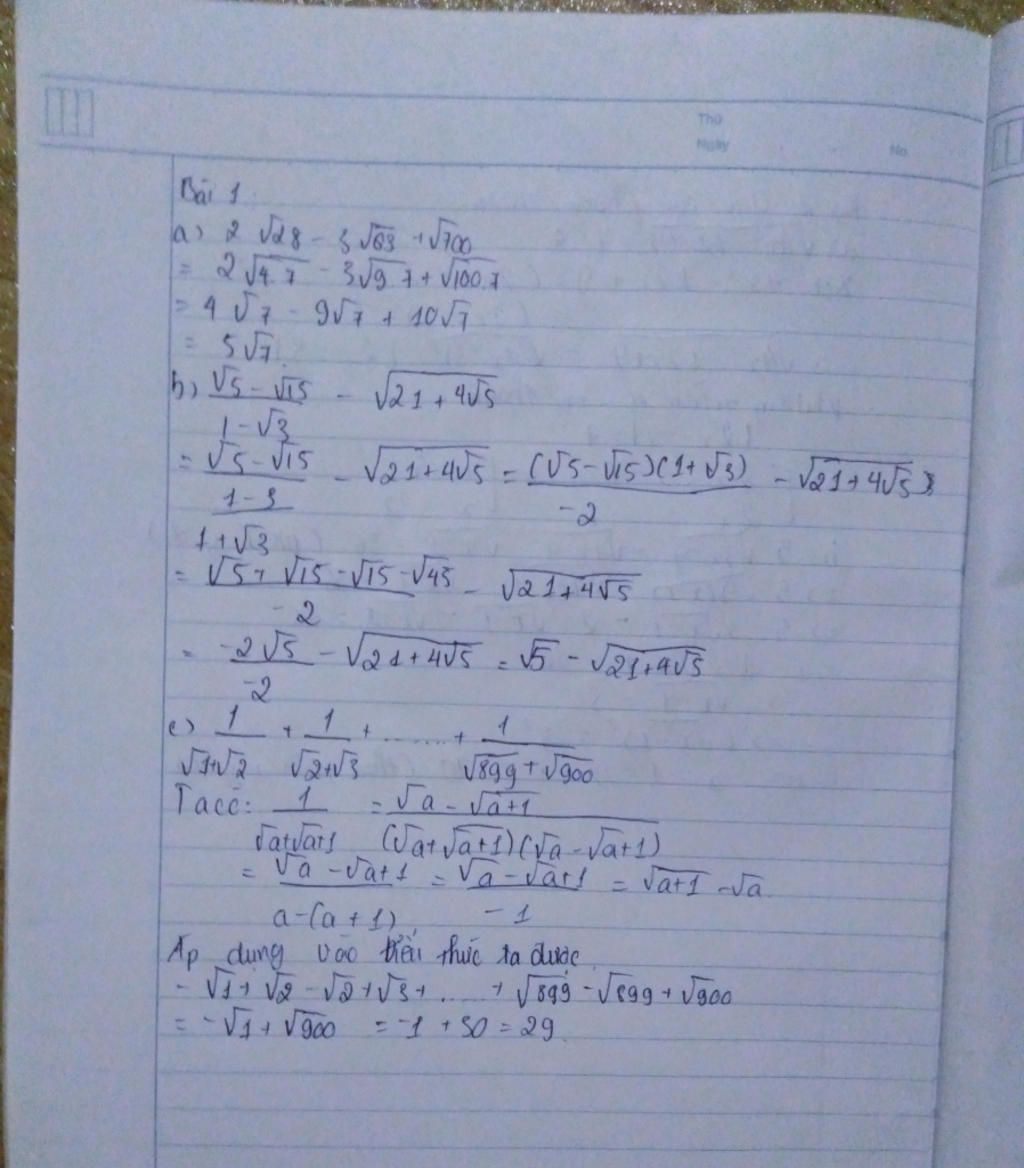 Thứ
Ngày No
Bài 1:
a) 2√28 - 3√63 + √700
= 2√4.7 - 3√9.7 + √100.7
= 4√7 - 9√7 + 10√7
= 5√7.
b) (√5 - √15)/(1 - √3) - √(21 + 4√5)
= (√5 - √15)/((1 - 3)/(1 + √3)) - √(21 + 4√5) = ((√5 - √15)(1 + √3))/(-2) - √(21 + 4√5)
= (√5 + √15 - √15 - √45)/(-2) - √(21 + 4√5)
= (-2√5)/(-2) - √(21 + 4√5) = √5 - √(21 + 4√5)
c) 1/(√1 + √2) + 1/(√2 + √3) + ....... + 1/(√899 + √900)
Ta có: 1/(√a + √(a+1)) = (√a - √(a+1))/((√a + √(a+1))(√a - √(a+1)))
= (√a - √(a+1))/(a - (a + 1)) = (√a - √(a+1))/(-1) = √(a+1) - √a
Áp dụng vào biểu thức ta được
- √1 + √2 - √2 + √3 + ..... + √899 - √899 + √900
= -√1 + √900 = -1 + 30 = 29